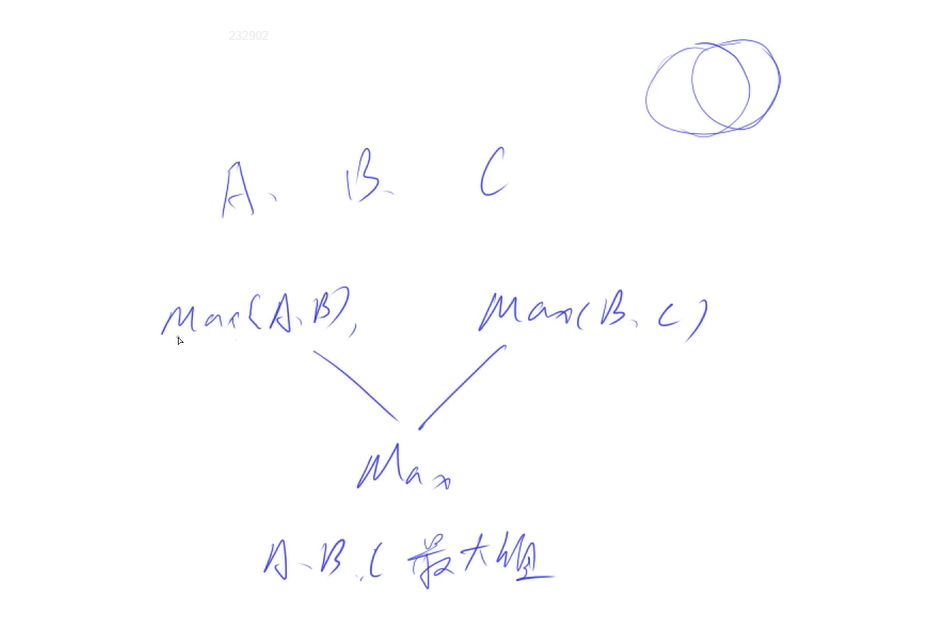 232902
A、B、C
Max(A、B), Max(B、C)
Max
A、B、C最大值